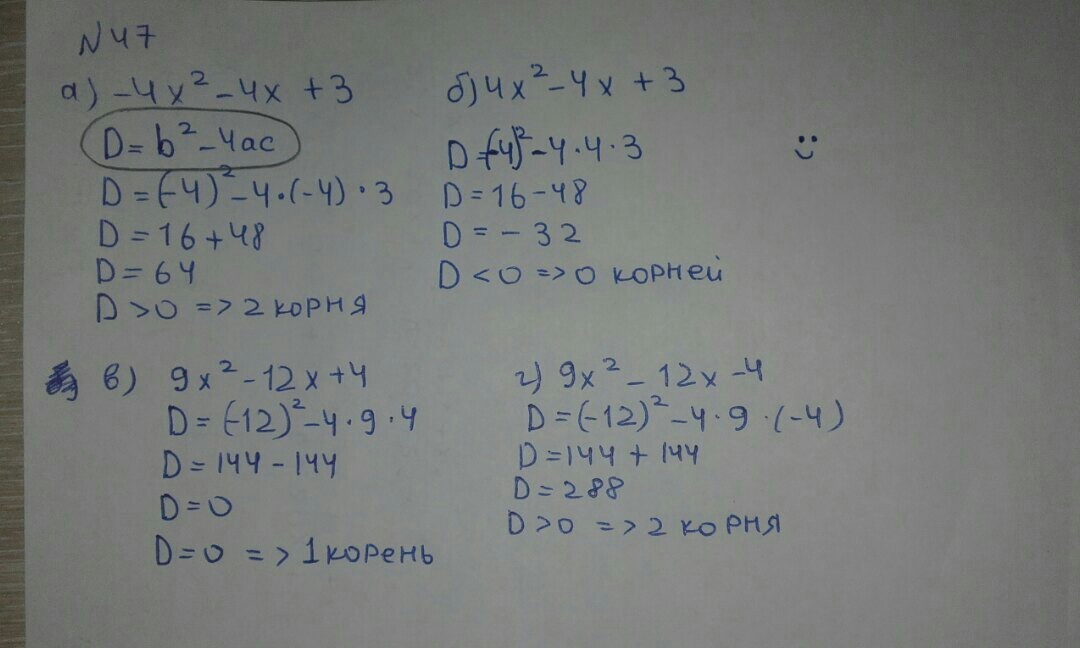 N 47
а) -4x² - 4x + 3
D = b² - 4ac
D = (-4)² - 4·(-4)·3
D = 16 + 48
D = 64
D > 0 => 2 корня
б) 4x² - 4x + 3
D = (-4)² - 4·4·3
D = 16 - 48
D = - 32
D < 0 => 0 корней
в) 9x² - 12x + 4
D = (-12)² - 4·9·4
D = 144 - 144
D = 0
D = 0 => 1 корень
г) 9x² - 12x - 4
D = (-12)² - 4·9·(-4)
D = 144 + 144
D = 288
D > 0 => 2 корня